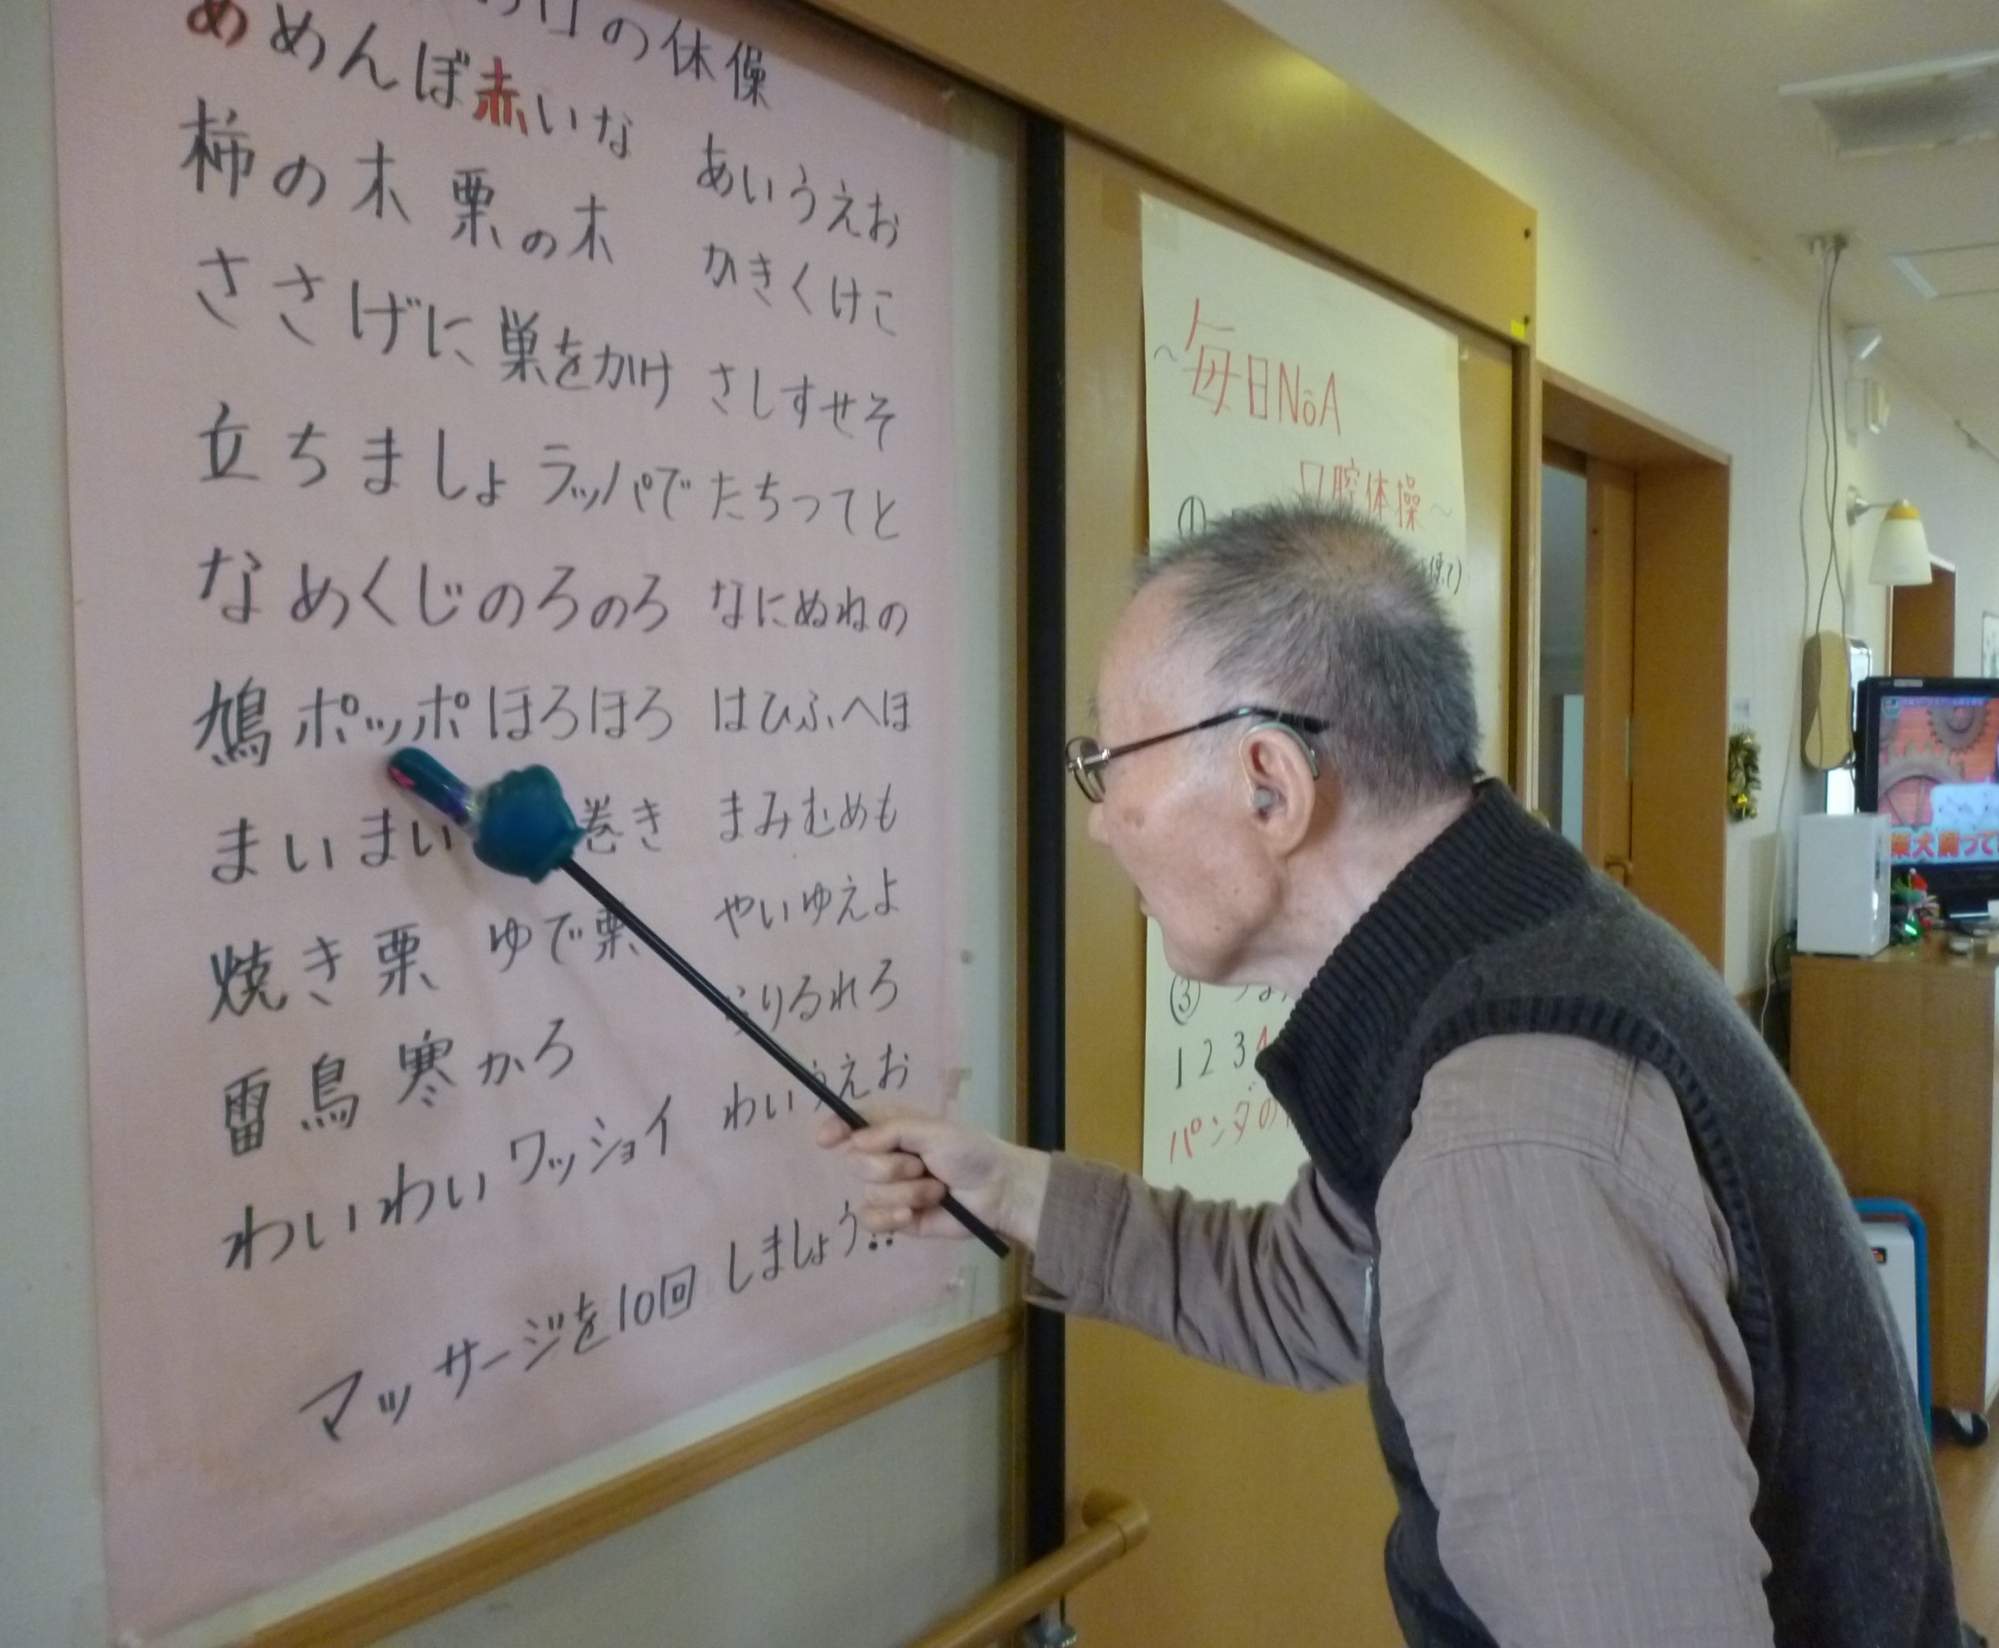 お口の体操
あめんぼ赤いな あいうえお
柿の木 栗の木 かきくけこ
ささげに巣をかけ さしすせそ
立ちましょ ラッパで たちつてと
なめくじのろのろ なにぬねの
鳩ポッポ ほろほろ はひふへほ
まいまい 巻き まみむめも
焼き栗 ゆで栗 やいゆえよ
雷鳥寒かろ らりるれろ
わいわいワッショイ わいうえお
マッサージを10回 しましょう!!
～毎日NoA
口腔体操～
①
③
1 2 3
パンダの